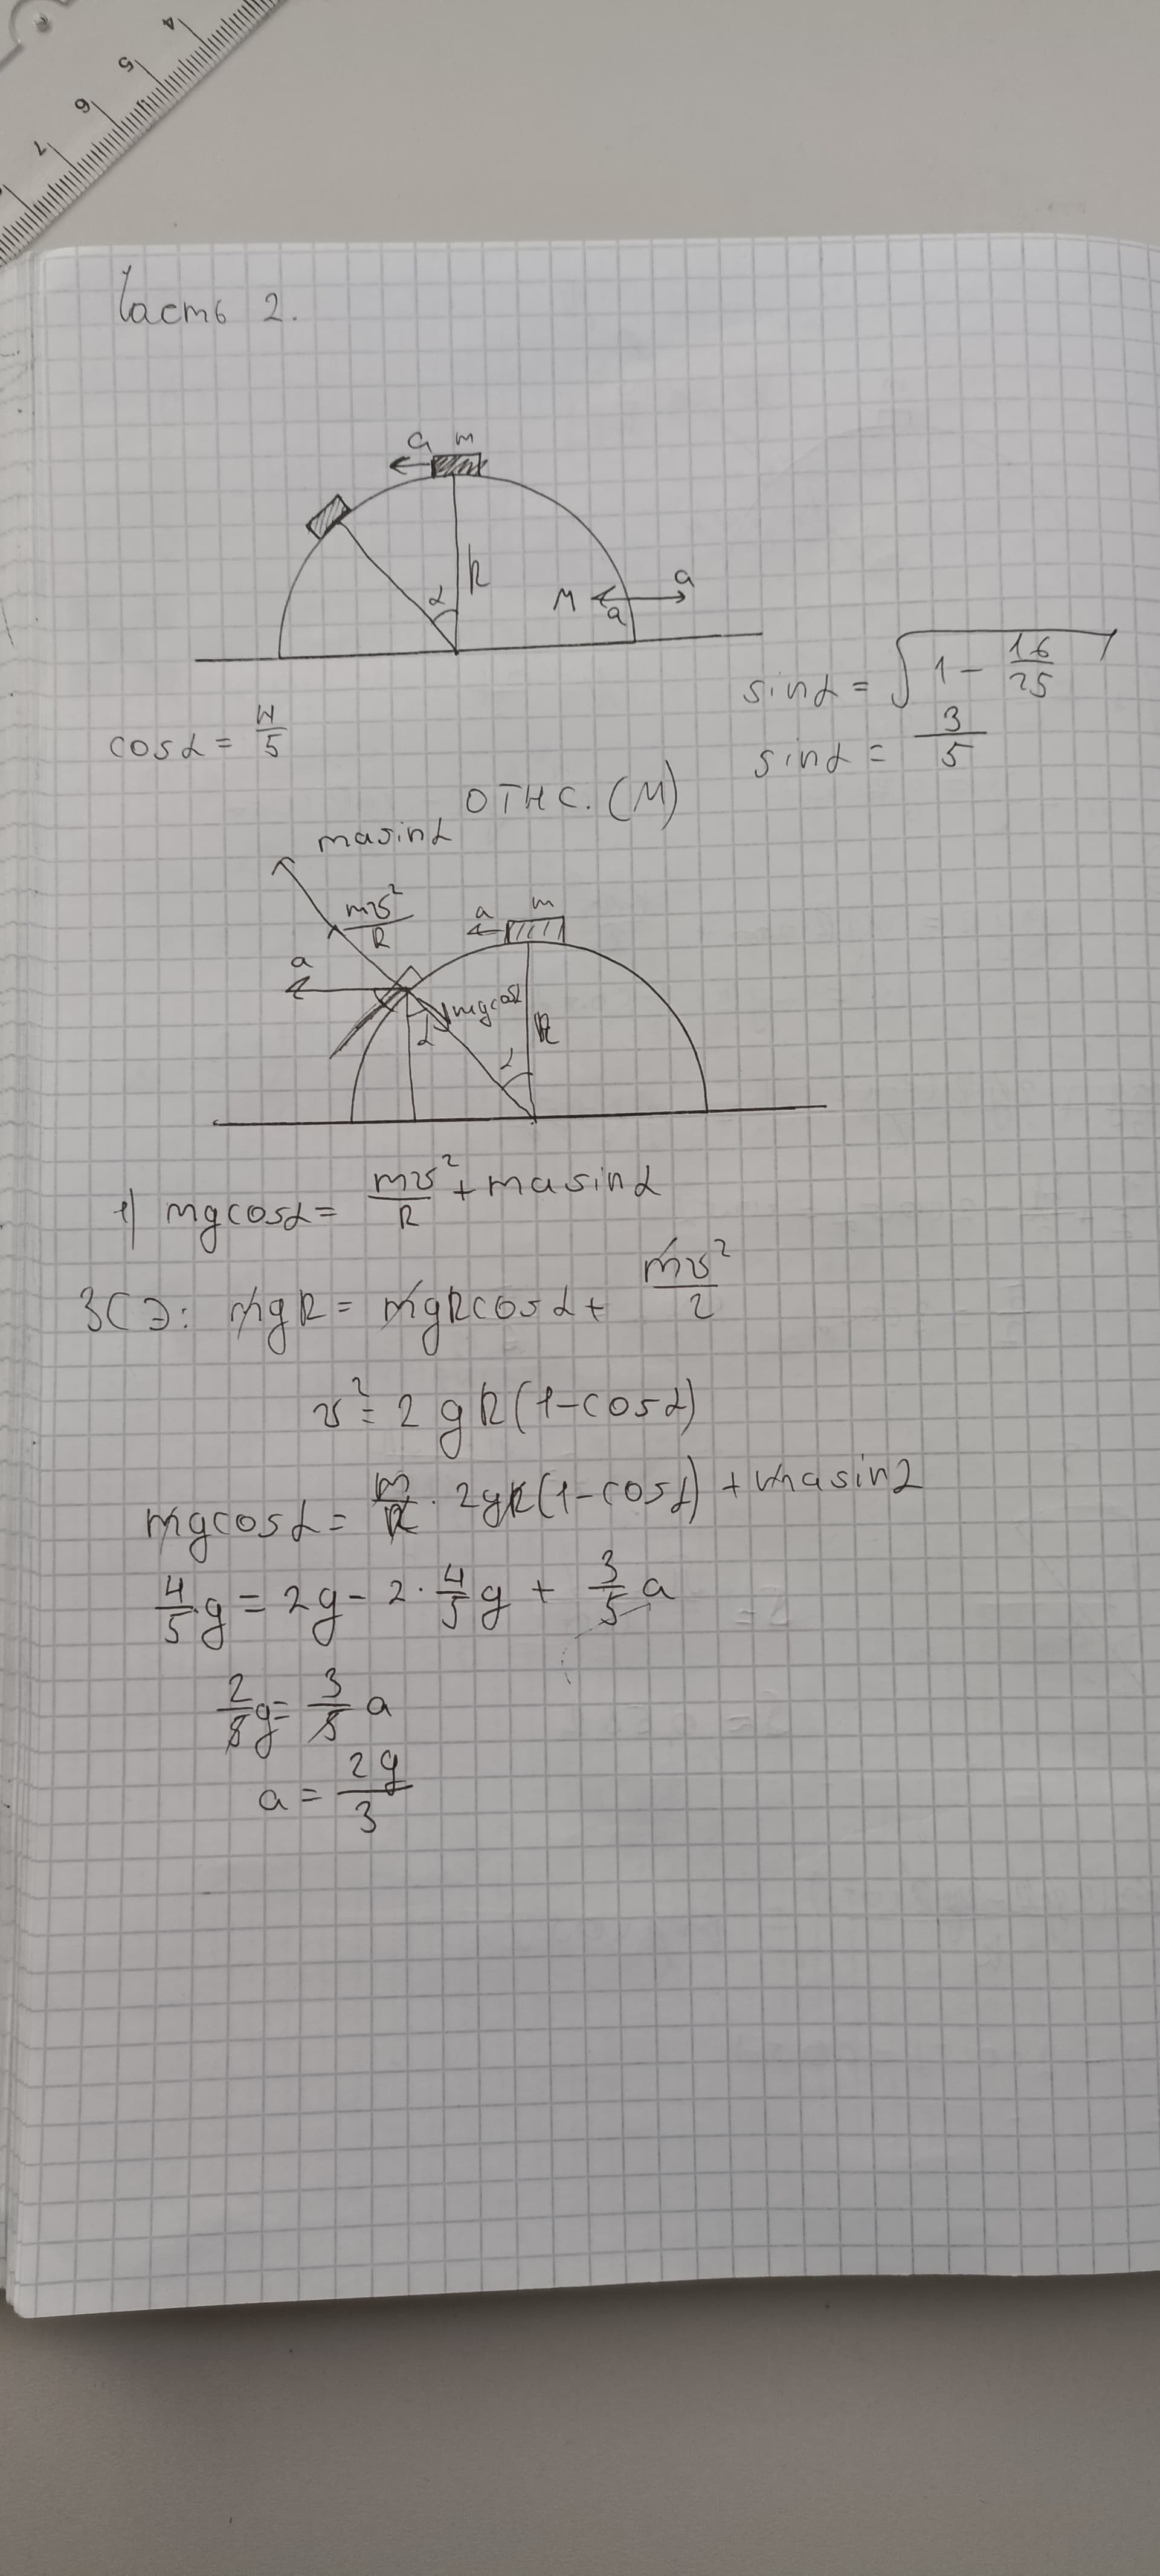 4
5
6
7
Часть 2.
a m
α R
M a a
cosα = 4/5
sinα = √(1 - 16/25)
sinα = 3/5
ОТНС. (M)
masinα
mv²/R
a m
a
mgcosα
α α R
1) mgcosα = mv²/R + masinα
ЗСЭ: mgR = mgRcosα + mv²/2
v² = 2gR(1-cosα)
mgcosα = m/R · 2gR(1-cosα) + masinα
4/5 g = 2g - 2 · 4/5 g + 3/5 a
2/5 g = 3/5 a
a = 2g/3